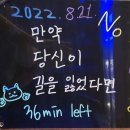 2022. 8.21.
No
만약
당신이
길을 잃었다면
36min left